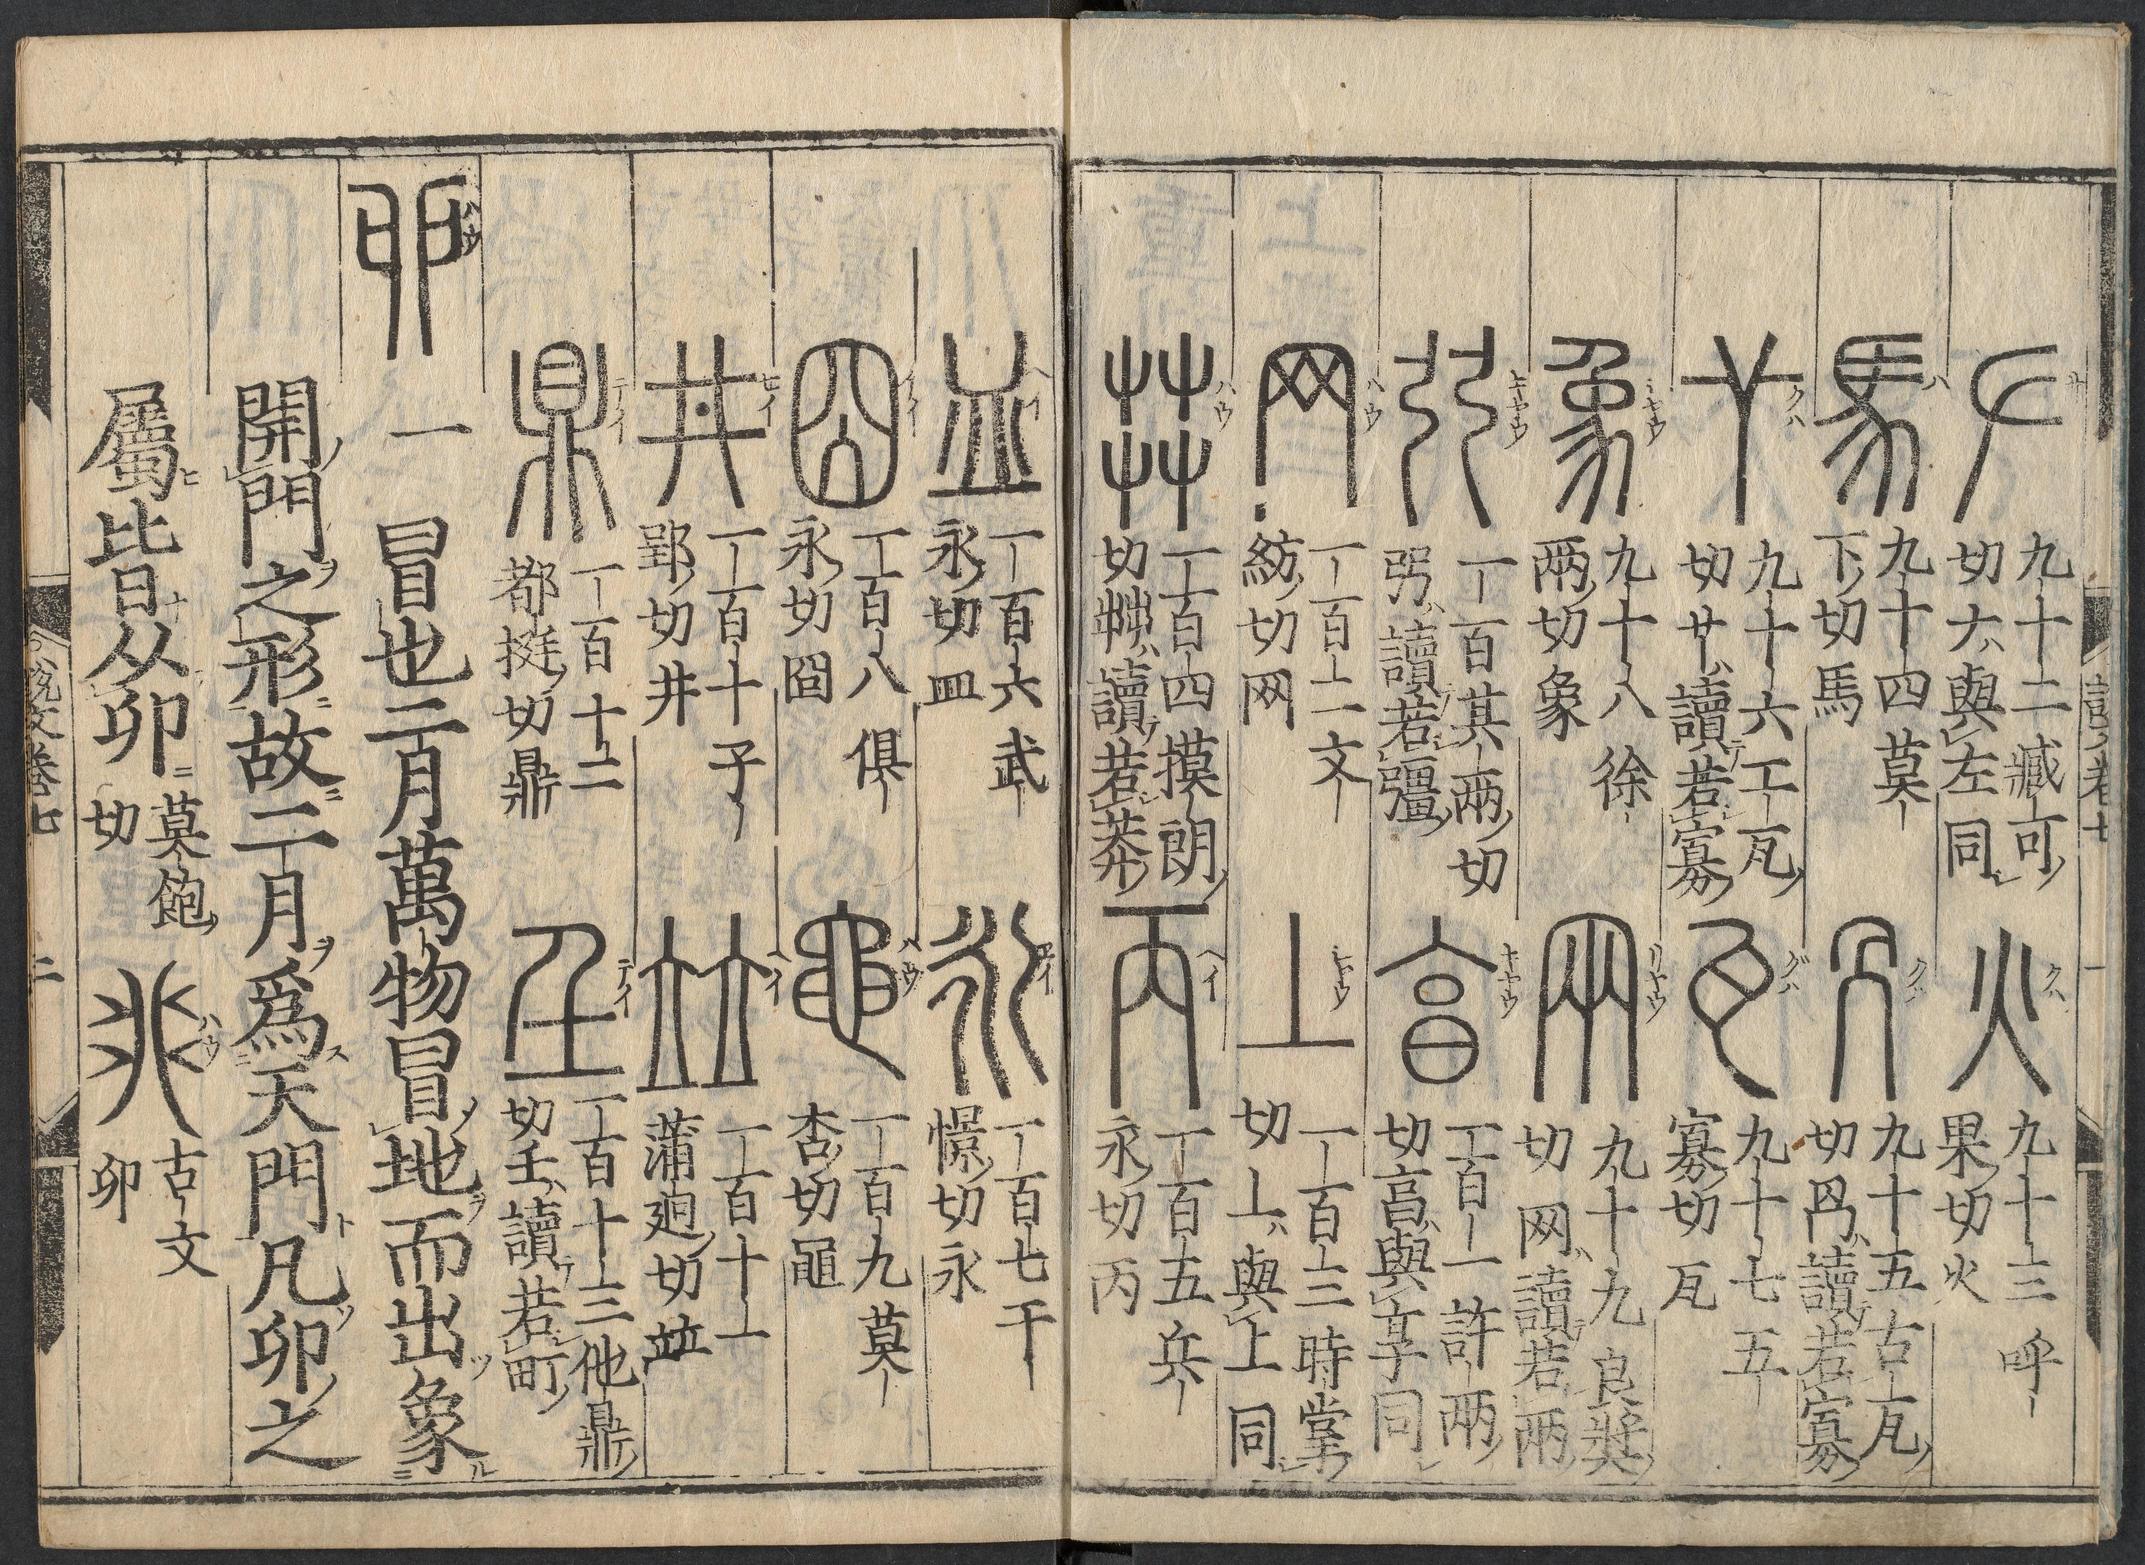 九十二臧可
切𠂇與左同
九十三呼
果切火
九十四莫
下切馬
九十五古瓦
切冎讀若寡
九十六工瓦
切𦫳讀若寡
九十七五
寡切瓦
九十八徐
兩切象
九十九良奬
切㒳讀若兩
一百其兩切
弜讀若彊
一百一許兩
切亯與享同
一百二文
紡切网
一百三時掌
切丄與上同
一百四摸朗
切茻讀若莽
一百五兵
永切丙
一百六武
永切皿
一百七干
憬切永
一百八俱
永切囧
一百九莫
杏切黽
一百十子
郢切井
一百十一
蒲迥切竝
一百十二
都挺切鼎
一百十三他鼎
切𡈼讀若町
一
冒也二月萬物冒地而出象
開門之形故二月爲天門凡卯之
屬皆从卯
莫飽
切
古文
卯
説文卷七 二